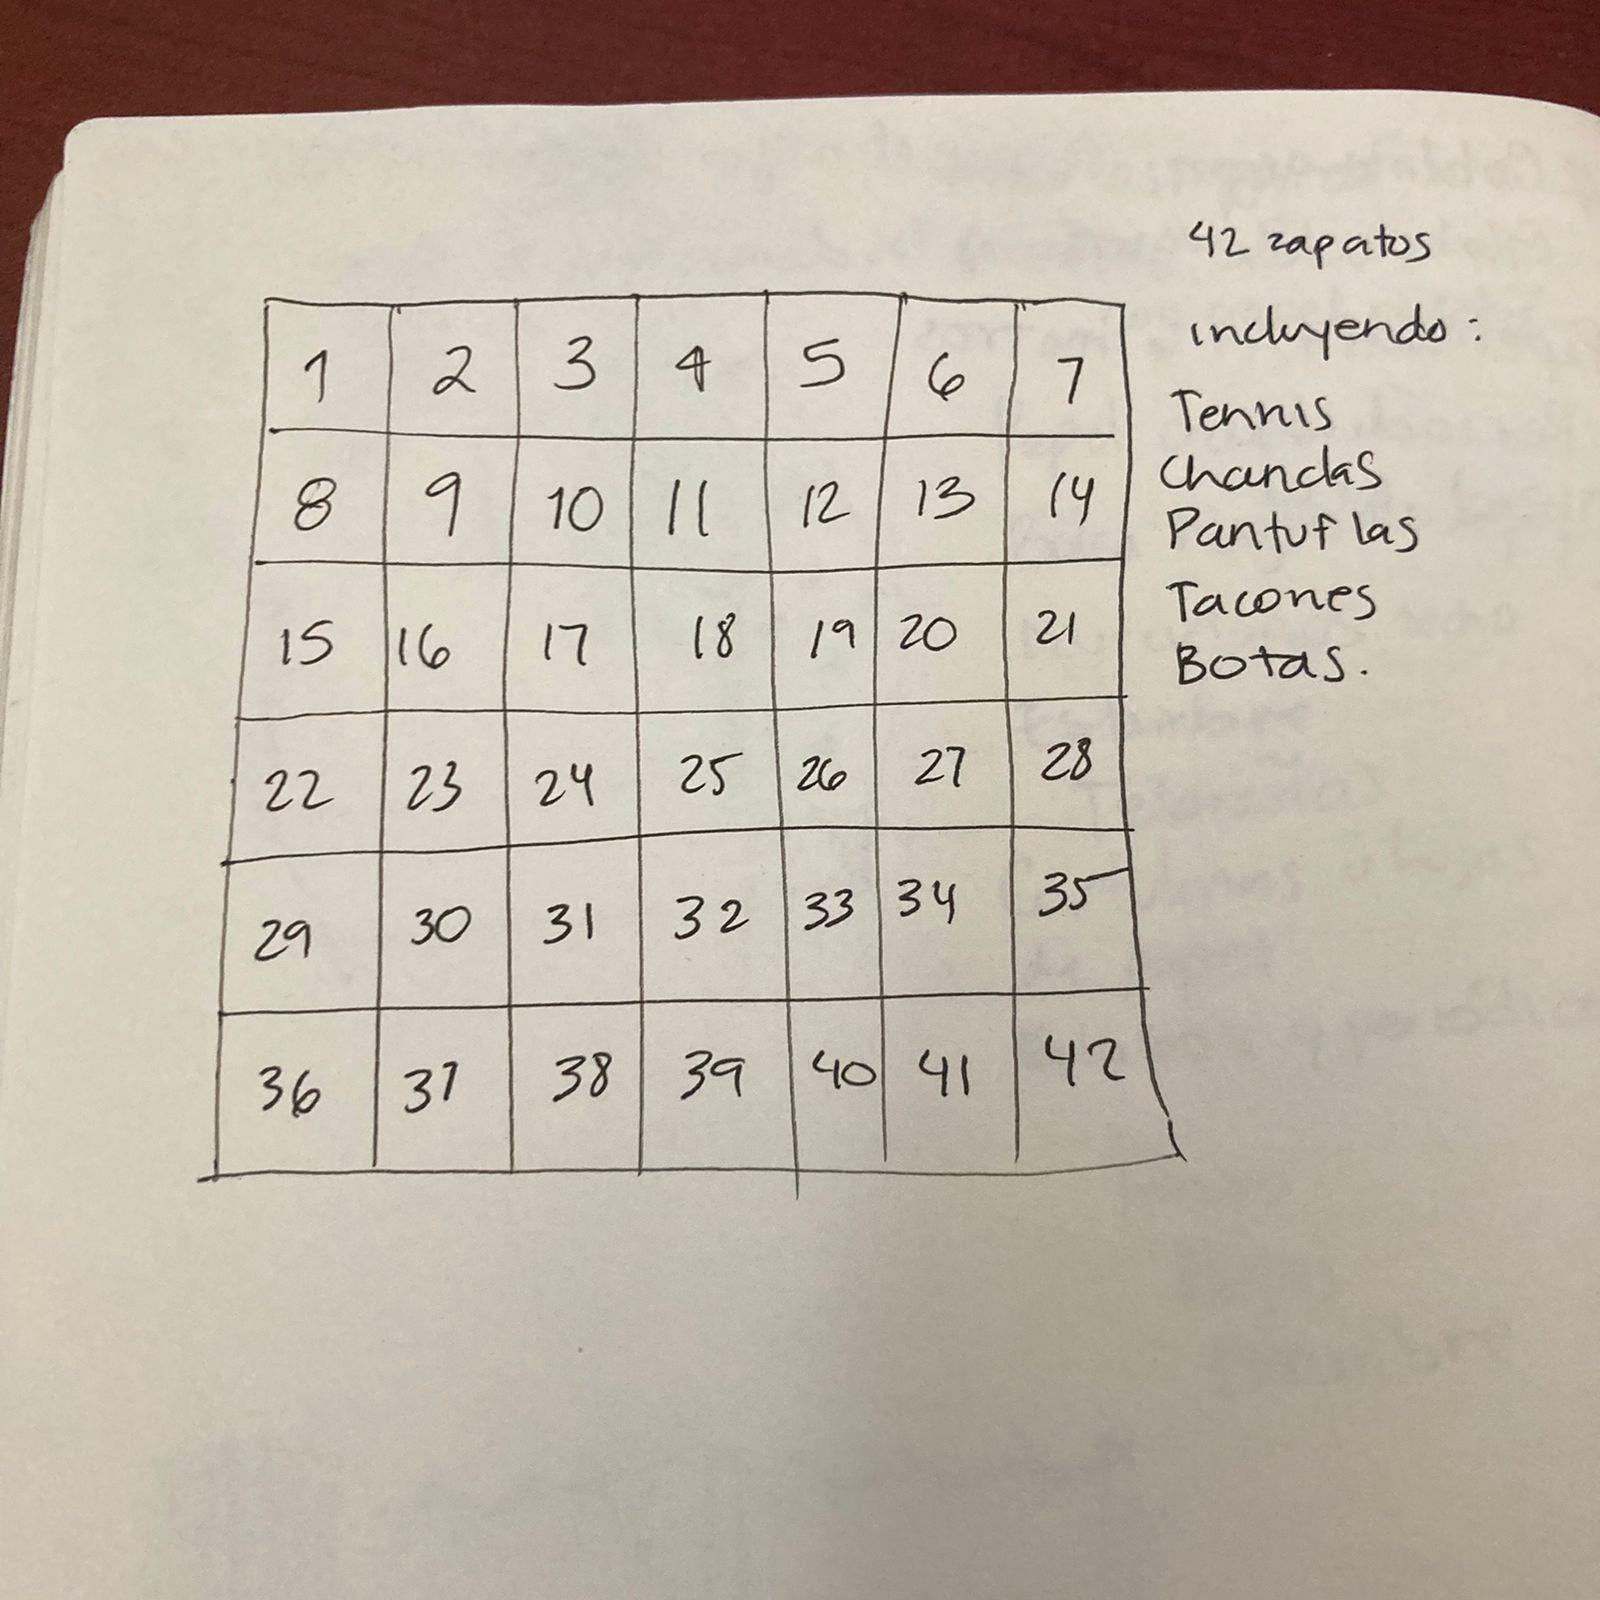 42 zapatos
incluyendo:
Tennis
Chanclas
Pantuflas
Tacones
Botas.
1 2 3 4 5 6 7
8 9 10 11 12 13 14
15 16 17 18 19 20 21
22 23 24 25 26 27 28
29 30 31 32 33 34 35
36 37 38 39 40 41 42